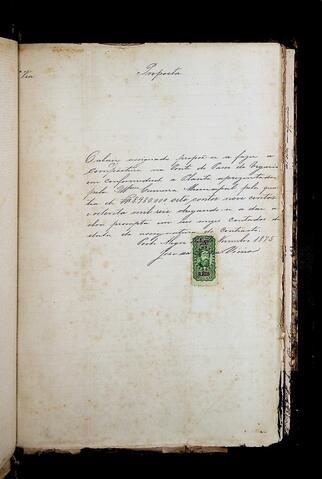 Proposta
O abaixo assignado propõe a fazer a
compostura na Ponte do Passo do
em conformidade a Planta apresentada
pela Camara Municipal pela quan
tia de 8980000 oito contos nove centos
e oitenta mil reis obrigando-se a dar a
obra prompta em seis mezes contados da
data da assignatura do contracto.
Porto Alegre 1875